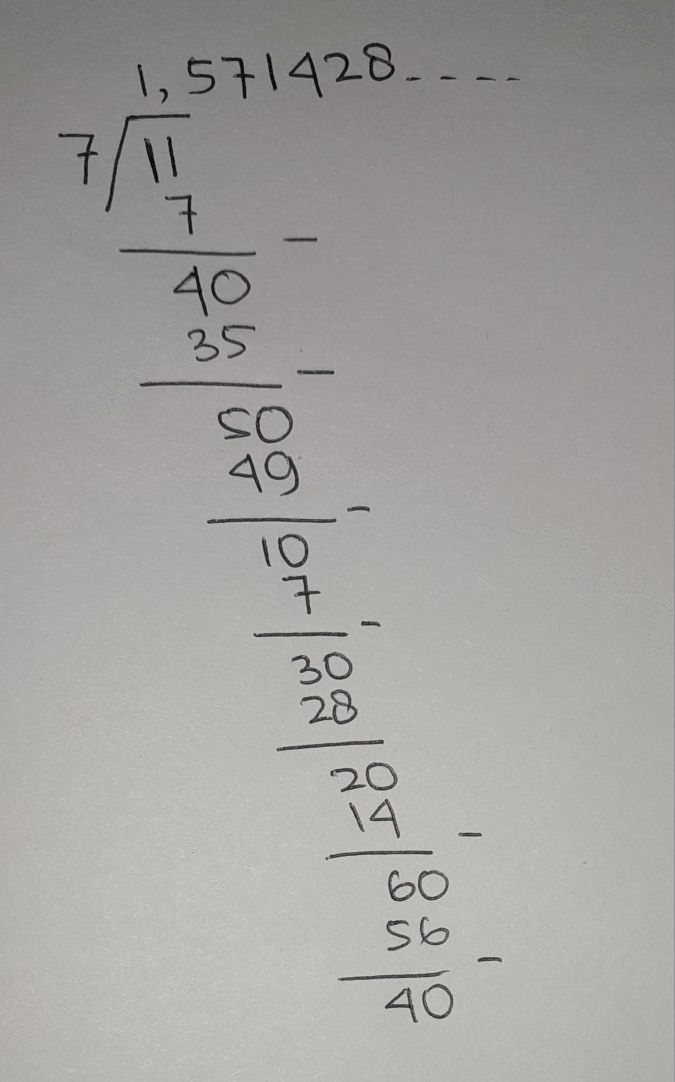 1,571428----
7/11
7
-
40
35
-
50
49
-
10
7
-
30
28
20
14
-
60
56
-
40